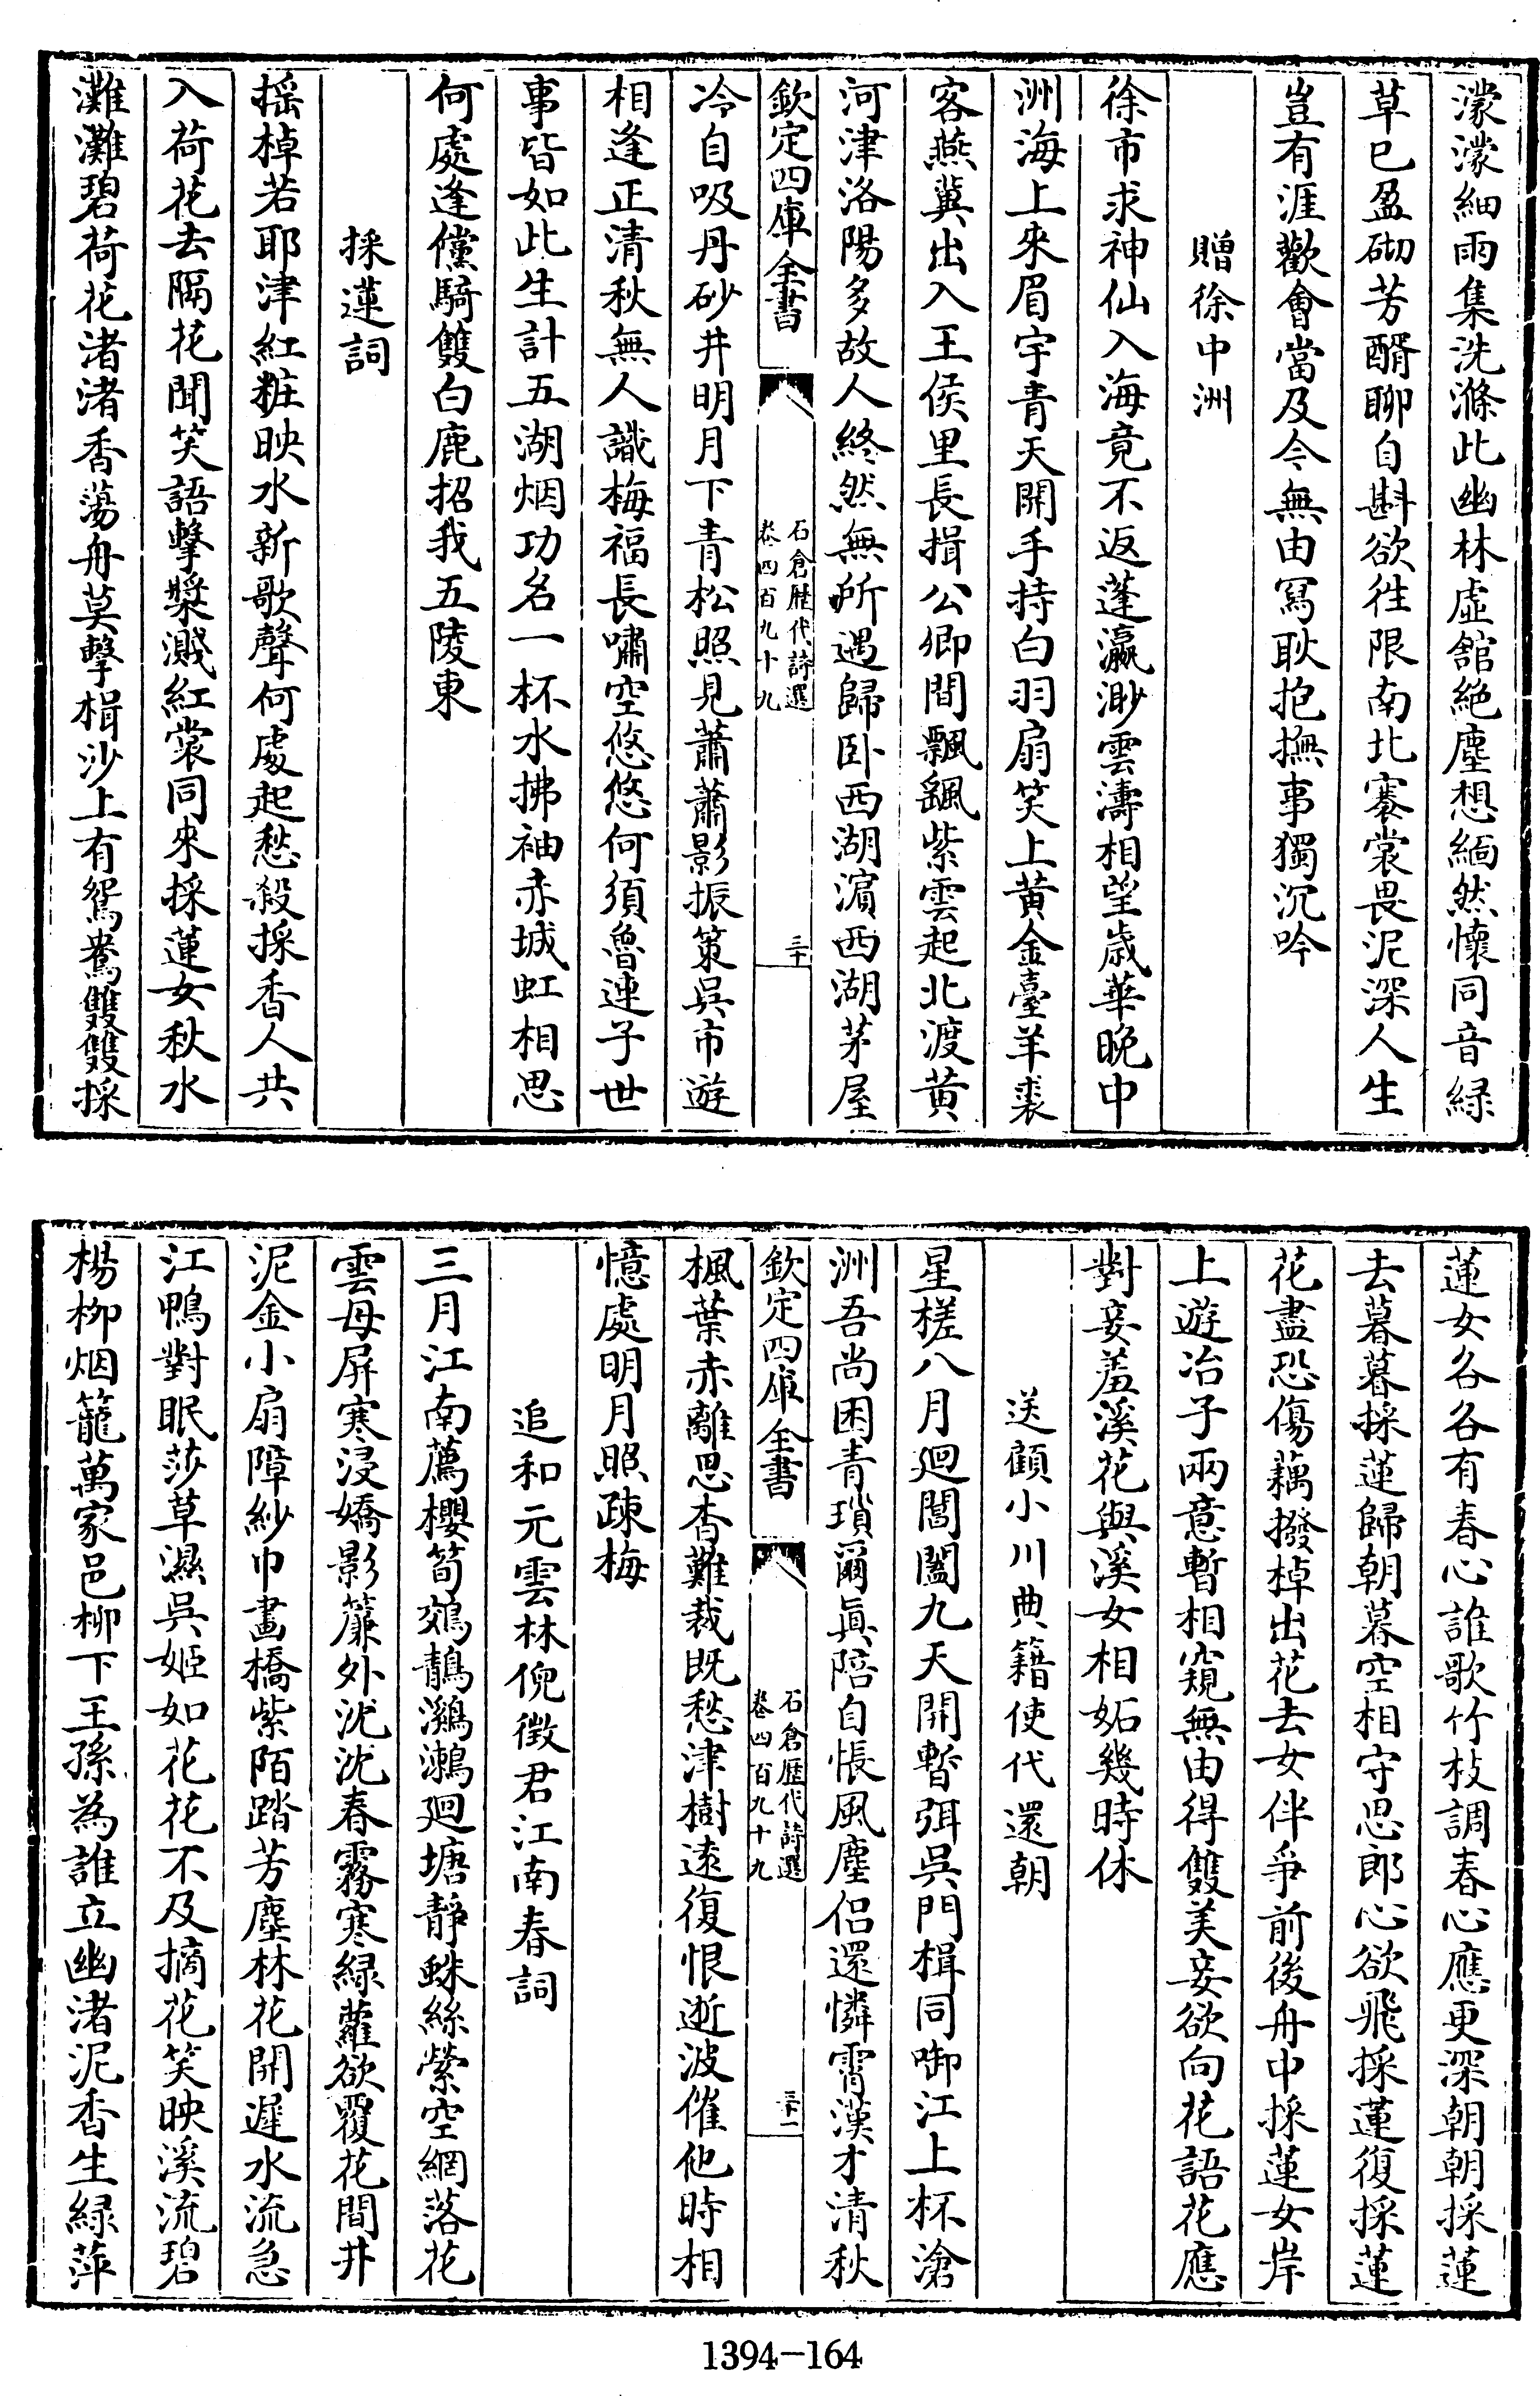 濛濛細雨集洗滌此幽林虛舘絶塵想緬然懷同音緑
草已盈砌芳醑聊自斟欲徃限南北褰裳畏泥深人生
豈有涯歡會當及今無由寫耿抱撫事獨沉吟
贈徐中洲
徐市求神仙入海竟不返蓬瀛渺雲濤相望歳華晚中
洲海上來眉宇青天開手持白羽扇笑上黄金臺羊裘
客燕冀出入王侯里長揖公卿間飄飖紫雲起北渡黄
河津洛陽多故人終然無所遇歸卧西湖濵西湖茅屋
欽定四庫全書
石倉歴代詩選
卷四百九十九
三十
冷自吸丹砂井明月下青松照見蕭蕭影振策吳市遊
相逢正清秋無人識梅福長嘯空悠悠何須魯連子世
事皆如此生計五湖烟功名一杯水拂袖赤城虹相思
何處逢儻騎雙白鹿招我五陵東
採蓮詞
摇棹若耶津紅粧映水新歌聲何處起愁殺採香人共
入荷花去隔花聞笑語擊槳濺紅裳同來採蓮女秋水
灘灘碧荷花渚渚香蕩舟莫擊楫沙上有鴛鴦雙雙採
蓮女各各有春心誰歌竹枝調春心應更深朝朝採蓮
去暮暮採蓮歸朝暮空相守思郎心欲飛採蓮復採蓮
花盡恐傷藕撥棹出花去女伴爭前後舟中採蓮女岸
上遊冶子兩意暫相窺無由得雙美妾欲向花語花應
對妾羞溪花與溪女相妬幾時休
送顧小川典籍使代還朝
星槎八月廻閶闔九天開暫弭吳門楫同啣江上杯滄
洲吾尚困青瑣爾眞陪自悵風塵侣還憐霄漢才清秋
欽定四庫全書
石倉歴代詩選
卷四百九十九
三十一
楓葉赤離思杳難裁既愁津樹遠復恨逝波催他時相
憶處明月照疎梅
追和元雲林倪徴君江南春詞
三月江南薦櫻筍鵁鶄鸂鷘廻塘靜蛛絲縈空網落花
雲母屏寒浸嬌影簾外沈沈春霧寒緑蘿欲覆花間井
泥金小扇障紗巾畫橋紫陌踏芳塵林花開遲水流急
江鴨對眠莎草濕吳姬如花花不及摘花笑映溪流碧
楊栁烟籠萬家邑栁下王孫為誰立幽渚泥香生緑萍
1394-164